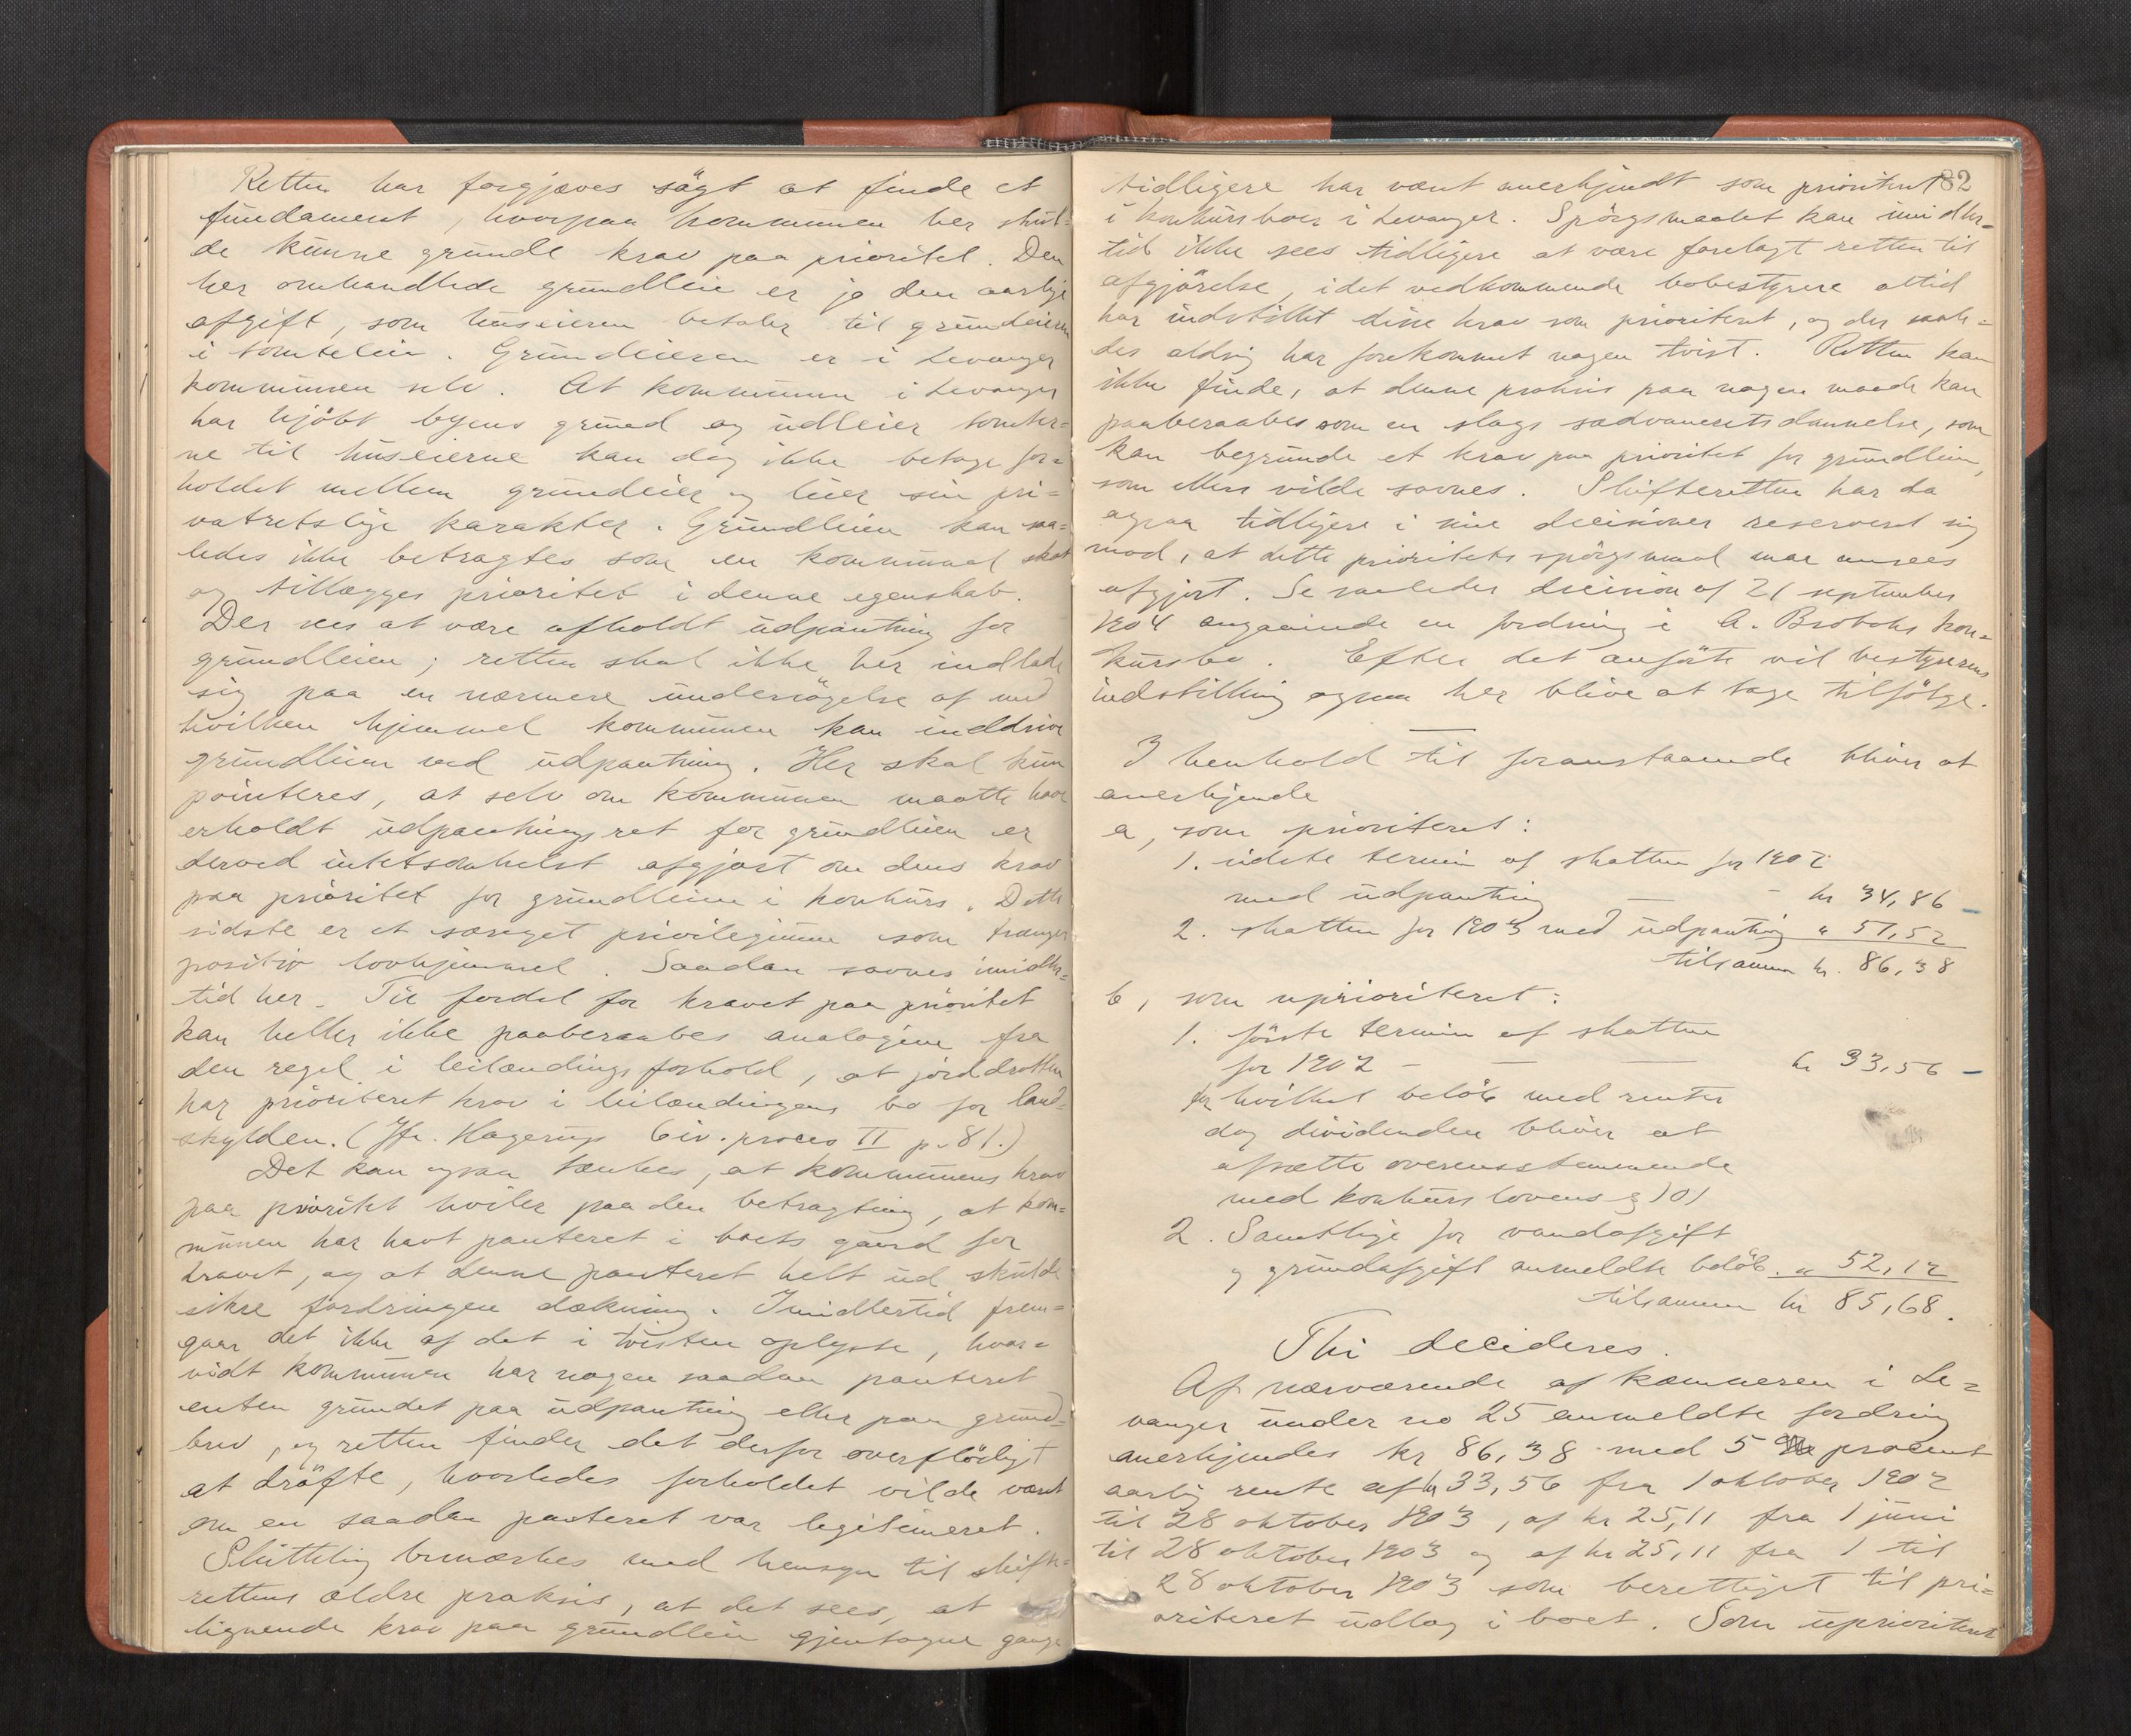 Retten har forgjæves sögt at finde et
fundament, hvorpaa kommunen her skul=
de kunne grunde krav paa prioritet. Den
her omhandlede grundleie er jo den aarlige
afgift, som huseieren betaler til grundeieren
i tomteleie. Grundeieren er i Levanger
kommunen selv. At kommunen i Levanger
har kjöbt byens grund og udleier tomter=
ne til huseierne kan dog ikke betage for=
holdet mellem grundeier og leier sin pri=
vatretslige karakter. Grundleien kan saa=
ledes ikke betragtes som en kommunal skat
og tillægges prioritet i denne egenskab.
Der sees at være afholdt udpantning for
grundleien; retten skal ikke her indlade
sig paa en nærmere undersögelse af med
hvilken hjemmel kommunen kan inddrive
grundleien ved udpantning. Her skal kun
pointeres, at selv om kommunen maatte have
erholdt udpantningsret for grundleien er
derved intetsomhelst afgjort om dens krav
paa prioritet for grundleien i konkurs. Dette
sidste er et særeget privilegium som trænger
positiv lovhjemmel. Saadan savnes imidler=
tid her. Til fordel for kravet paa prioritet
kan heller ikke paaberaabes analogien fra
den regel i leilændingsforhold, at jorddrotten
har prioriteret krav i leilændingens bo for land=
skylden. (Jfr. Hagerups Civ. proces II p. 81.)
Det kan ogsaa tænkes, at kommunens krav
paa prioritet hviler paa den betragtning, at kom=
munen har havt panteret i boets gaard for
kravet, og at denne panteret helt ud skulde
sikre fordringen dækning. Imidlertid frem=
gaar det ikke af det i tvisten oplyste, hvor=
vidt kommunen har nogen saadan panteret
enten grundet paa udpantning eller paa grund=
brev, og retten finder det derfor overflödigt
at dröfte, hvorledes forholdet vilde været
om en saadan panteret var legitimeret.
Sluttelig bemærkes med hensyn til skifte=
rettens ældre praksis, at det sees, at
lignende krav paa grundleie gjentagne gange
82
tidligere har været anerkjendt som prioriteret
i konkursboer i Levanger. Spörgsmaalet kan imidler=
tid ikke sees tidligere at være forelagt retten til
afgjörelse, idet vedkommende bobestyrere altid
har indstillet disse krav som prioriteret, og der saale=
des aldrig har forekommet nogen tvist. Retten kan
ikke finde, at denne praksis paa nogen maade kan
paaberaabes som en slags sædvaneretsdannelse, som
kan begrunde et krav paa prioritet for grundleien,
som ellers vilde savnes. Skifteretten har da
ogsaa tidligere i sine decisioner reserveret sig
mod, at dette prioritetsspörgsmaal maa ansees
afgjort. Se saaledes decision af 21 september
1904 angaaende en fordring i A. Brobaks kon=
kursbo. Efter det anförte vil bestyrerens
indstilling ogsaa her blive at tage tilfölge.
I henhold til foranstaaende bliver at
anerkjende
a, som prioriteret:
1. sidste termin af skatten for 1902
med udpantning – kr 34,86 –
2. skatten for 1903 med udpantning " 51,52
tilsammen kr. 86,38
b, som uprioriteret:
1. förste termin af skatten
for 1902 – kr 33,56 –
for hvilket belöb med renter
dog dividenden bliver at
afsætte overensstemmende
med konkurslovens § 101
2. Samtlige for vandafgift
og grundafgift anmeldte belöb. " 52,12
tilsammen kr 85,68.
Thi decideres.
Af nærværende af kæmneren i Le=
vanger under no 25 anmeldte fordring
anerkjendes kr 86,38 med 5 procent
aarlig rente af kr 33,56 fra 1 oktober 1902
til 28 oktober 1903, af kr 25,11 fra 1 juni
til 28 oktober 1903 og af kr 25,11 fra 1 til
28 oktober 1903 som berettiget til pri=
oriteret udlæg i boet. Som uprioriteret